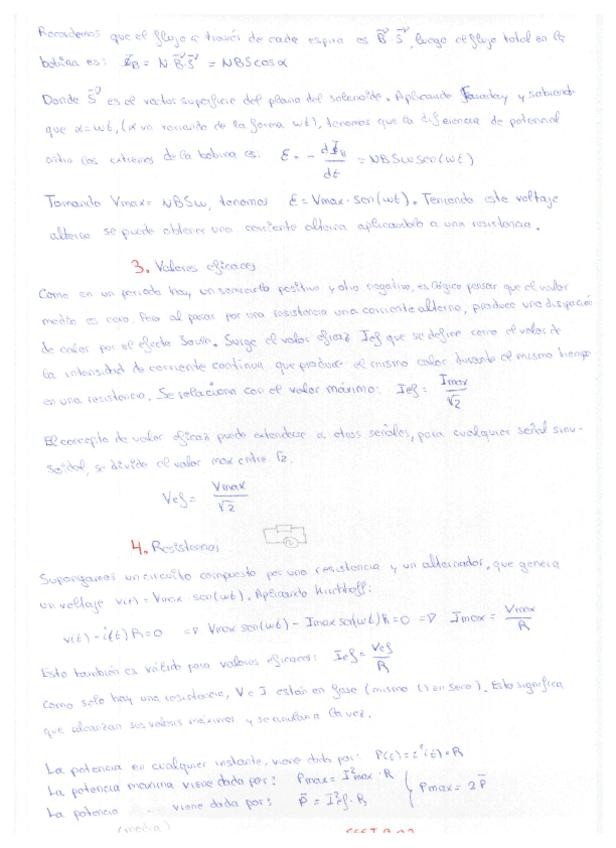 Recordemos que el flujo a través de cada espira es B⃗·S⃗, luego el flujo total en la
bobina es: Φ_B = N B⃗·S⃗ = NBScosα
Donde S⃗ es el vector superficie del plano del solenoide. Aplicando Faraday y sabiendo
que α=ωt, (α va variando de la forma ωt), tenemos que la diferencia de potencial
entre los extremos de la bobina es: ε = - dΦ_B/dt = NBSω sen(ωt)
Tomando Vmax = NBSω, tenemos ε = Vmax · sen(ωt). Teniendo este voltaje
alterno se puede obtener una corriente alterna aplicandolo a una resistencia.
3. Valores eficaces
Como en un periodo hay un semiciclo positivo y otro negativo, es lógico pensar que el valor
medio es cero. Pero al pasar por una resistencia una corriente alterna, produce una disipación
de calor por el efecto Joule. Surge el valor eficaz Ief que se define como el valor de
la intensidad de corriente continua que produce el mismo calor durante el mismo tiempo
en una resistencia. Se relaciona con el valor máximo: Ief = Imax/√2
El concepto de valor eficaz puede extenderse a otras señales, para cualquier señal sinu-
soidal, se divide el valor max entre √2.
Vef = Vmax/√2
4. Resistencias
Supongamos un circuito compuesto por una resistencia y un alternador, que genera
un voltaje v(t) = Vmax sen(ωt). Aplicando Kirchhoff:
v(t) - i(t)R = 0 ⇒ Vmax sen(ωt) - Imax sen(ωt)R = 0 ⇒ Imax = Vmax/R
Esto también es válido para valores eficaces: Ief = Vef/R
Como solo hay una resistencia, V e I están en fase (mismo () en seno). Esto significa
que alcanzan sus valores máximos y se anulan a la vez.
La potencia en cualquier instante, viene dada por: P(t) = i²(t) · R
La potencia maxima viene dada por: Pmax = I²max · R } Pmax = 2P̄
La potencia viene dada por: P̄ = I²ef · R
(media)